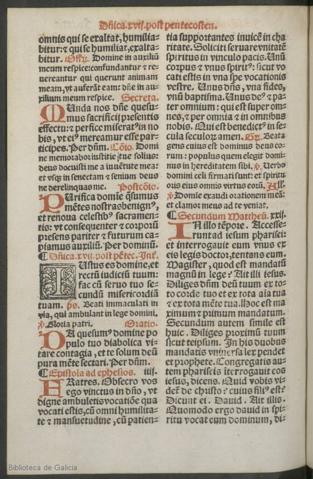 Dñica.xvij.post pentecosten.
omnis qui se exaltat, humilia-
bitur: & qui se humiliat, exalta-
bitur. Offer. Domine in auxiliũ
meum respice: confundantur & re-
uereantur qui querunt animam
meam, vt auferãt eam: dñe in au-
xilium meum respice. Secreta.
MUnda nos dñe quesu-
mus sacrificij presentis
effectu: & perfice miserat⁹ in no
bis, vt ei⁹ mereamur esse par-
ticipes. Per dñm. Cõio. Domi
ne memorabor iustitie tue solius:
deus docuisti me a iuuẽtute mea:
et vsq; in senectam & senium deus
ne derelinquas me. Postcõio.
PUrifica domĩe q̃sumus
mẽtes nostras benign⁹,
et renoua celestib⁹ sacramen-
tis: vt consequenter & corporũ
presens pariter & futurum ca-
piamus auxiliũ. Per dominũ.
Dñica.xvij.post pẽtec. Int̃.
IUstus es domine, et
rectũ iudiciũ tuum:
fac cũ seruo tuo se-
cundũ misericordiã
tuam. ps. Beati immaculati in
via, qui ambulant in lege domini.
Gloria patri. Oratio.
DA quesum⁹ domine po
pulo tuo diabolica vi-
tare contagia, et te solum deũ
pura mẽte sectari. Per dñm.
Epistola ad ephesios. iiij.
FRatres. Obsecro vos
ego vinctus in dño, vt
digne ambuletis vocatiõe qua
vocati estis, cũ omni humilita-
te & mansuetudine, cũ patien-
tia supportantes inuicẽ in cha
ritate. Soliciti seruare vnitatẽ
spiritus in vinculo pacis. Unũ
corpus & vnus spirit⁹: sicut vo
cati estis in vna spe vocationis
vestre. Unus dñs, vna fides,
vnũ baptisma. Unus de⁹ & pa-
ter omnium: qui est super om-
nes, & per omnia & in omnibus
nobis. Qui est benedict⁹ in se-
cula seculoꝝ amen. Gr. Beata
gens cuius est dominus deus eo-
rum: populus quem elegit domi-
nus in hereditatem sibi. Verbo
domini celi firmati sunt: et spiritu
oris eius omnis virtus eorũ. All.
Domine exaudi orationem meã:
et clamor meus ad te veniat.
Secundum Mattheũ. xxij.
IN illo tẽpore. Accesse-
runt ad iesum pharisei:
et interrogauit eum vnus ex
eis legis doctor, tentans eum.
Magister, quod est mandatũ
magnũ in lege? Ait illi iesus.
Diliges dñm deũ tuum ex to
to corde tuo et ex tota aĩa tua
& ex tota mẽte tua. Hoc est ma
ximum & primum mandatum.
Secundum autem simile est
huic. Diliges proximũ tuum
sicut teipsum. In his duobus
mandatis vniuersa lex pendet
et prophete. Congregatis au-
tem phariseis interrogauit eos
iesus, dicens. Quid vobis vi-
det̃ de christo? cuius fili⁹ est?
Dicunt ei. Dauid. Ait illis.
Quomodo ergo dauid in spi-
ritu vocat eum dominum, di-
Biblioteca de Galicia